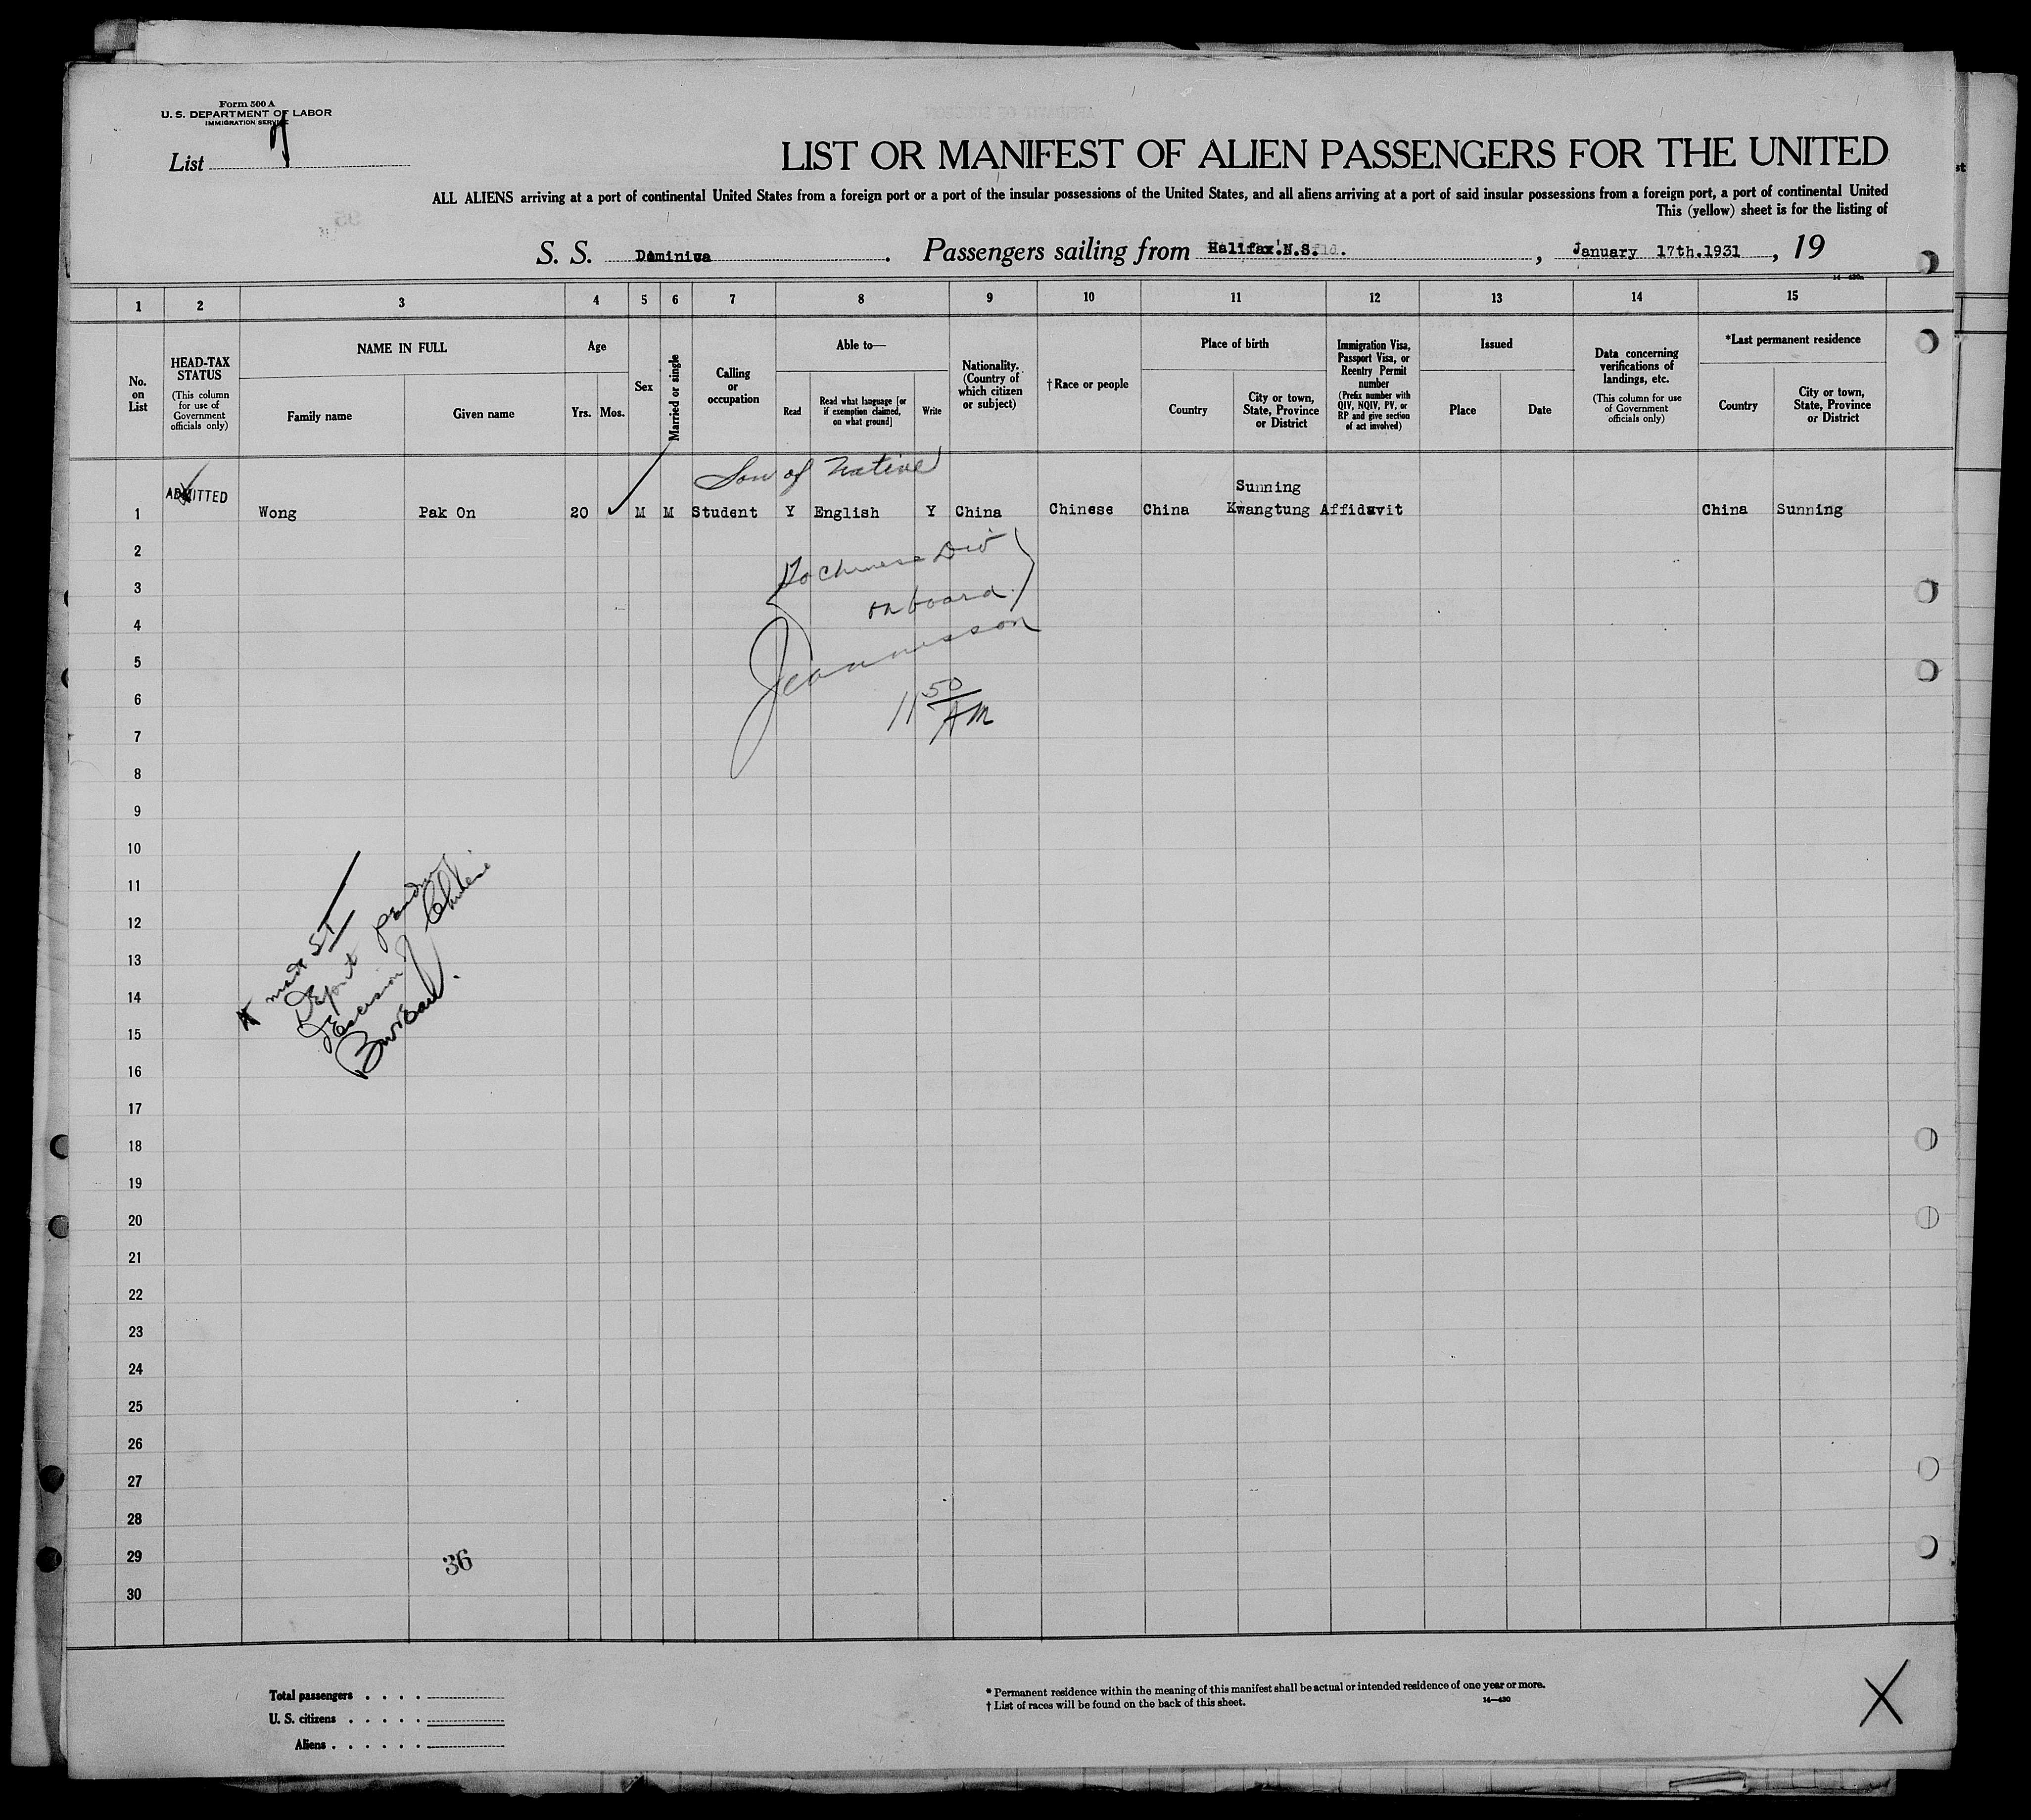 Form 500 A
U. S. DEPARTMENT OF LABOR
IMMIGRATION SERVICE
List 7
LIST OR MANIFEST OF ALIEN PASSENGERS FOR THE UNITED
ALL ALIENS arriving at a port of continental United States from a foreign port or a port of the insular possessions of the United States, and all aliens arriving at a port of said insular possessions from a foreign port, a port of continental United
This (yellow) sheet is for the listing of
S. S. Dominica. Passengers sailing from Halifax.N.S. , January 17th.1931 , 19
14—430a
1 2 3 4 5 6 7 8 9 10 11 12 13 14 15
No. on List
HEAD-TAX STATUS
(This column for use of Government officials only)
NAME IN FULL
Family name
Given name
Age
Yrs.
Mos.
Sex
Married or single
Calling or occupation
Able to—
Read
Read what language [or if exemption claimed, on what ground]
Write
Nationality. (Country of which citizen or subject)
†Race or people
Place of birth
Country
City or town, State, Province or District
Immigration Visa, Passport Visa, or Reentry Permit number
(Prefix number with QIV, NQIV, PV, or RP and give section of act involved)
Issued
Place
Date
Data concerning verifications of landings, etc.
(This column for use of Government officials only)
*Last permanent residence
Country
City or town, State, Province or District
Son of Native
ADMITTED
Sunning
1 Wong Pak On 20 M M Student Y English Y China Chinese China Kwangtung Affidavit China Sunning
2
To Chinese Div
3
on board
4
5
6
11 50 AM
7
8
9
10
11
12
13
14
15
16
Deport pending
decision Chinese
Bureau.
17
18
19
20
21
22
23
24
25
26
27
28
29
36
30
Total passengers . . . .
U. S. citizens . . . . .
Aliens . . . . . .
* Permanent residence within the meaning of this manifest shall be actual or intended residence of one year or more.
† List of races will be found on the back of this sheet.
14—430
X